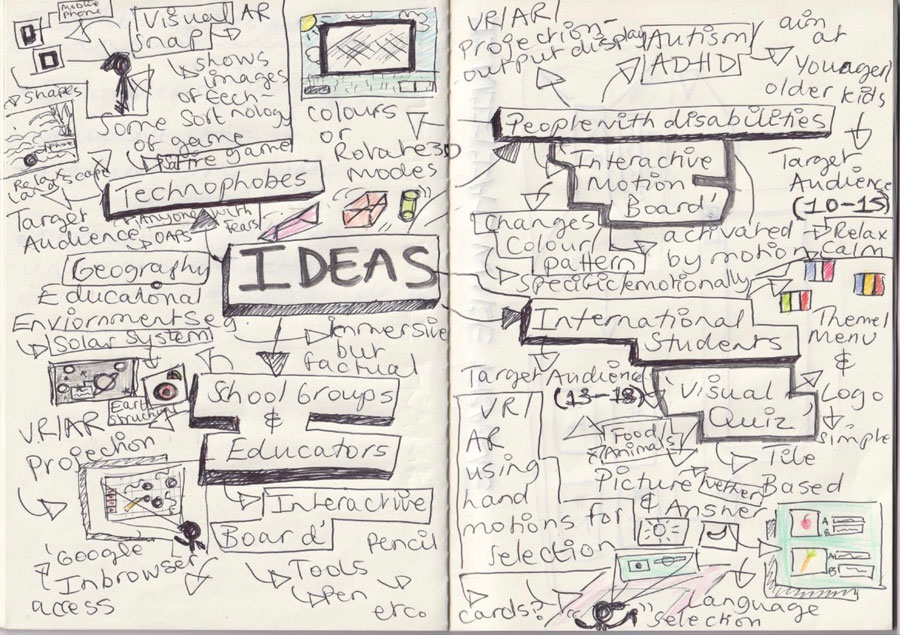 Mobile
Phone
Visual
Snap
AR
shows
images
of tech
nology
Shapes
Some Sort
of game
Relax
Technophobes
Target
Audience
Anyone with
fears
OAPs
colours
or
Rotate 3D
modes
IDEAS
Geography
Educational
Enviornments eg
Solar System
immersive
but
factual
School Groups
&
Educators
VR/AR
Projection
Interactive
Board'
'Google'
Inbrowser
access
Tools
Pen
Pencil
etc.
VR/AR/
projection-
output display
Autism/
ADHD
aim
at
Younger/
older kids
People with disabilities
'Interactive
Motion
Board'
Target
Audience
(10-15)
Changes
Colour/
pattern
specific/emotionally
activated
by motion
Relax
Calm
International
Students
Theme/
Menu
&
Logo
simple
Target Audience
(13-18)
'Visual
Quiz'
Food/
Animals
Tile
Based
Picture
&
Answer
VR/
AR
using
hand
motions for
selection
cards?
Language
selection
A
B
A
B